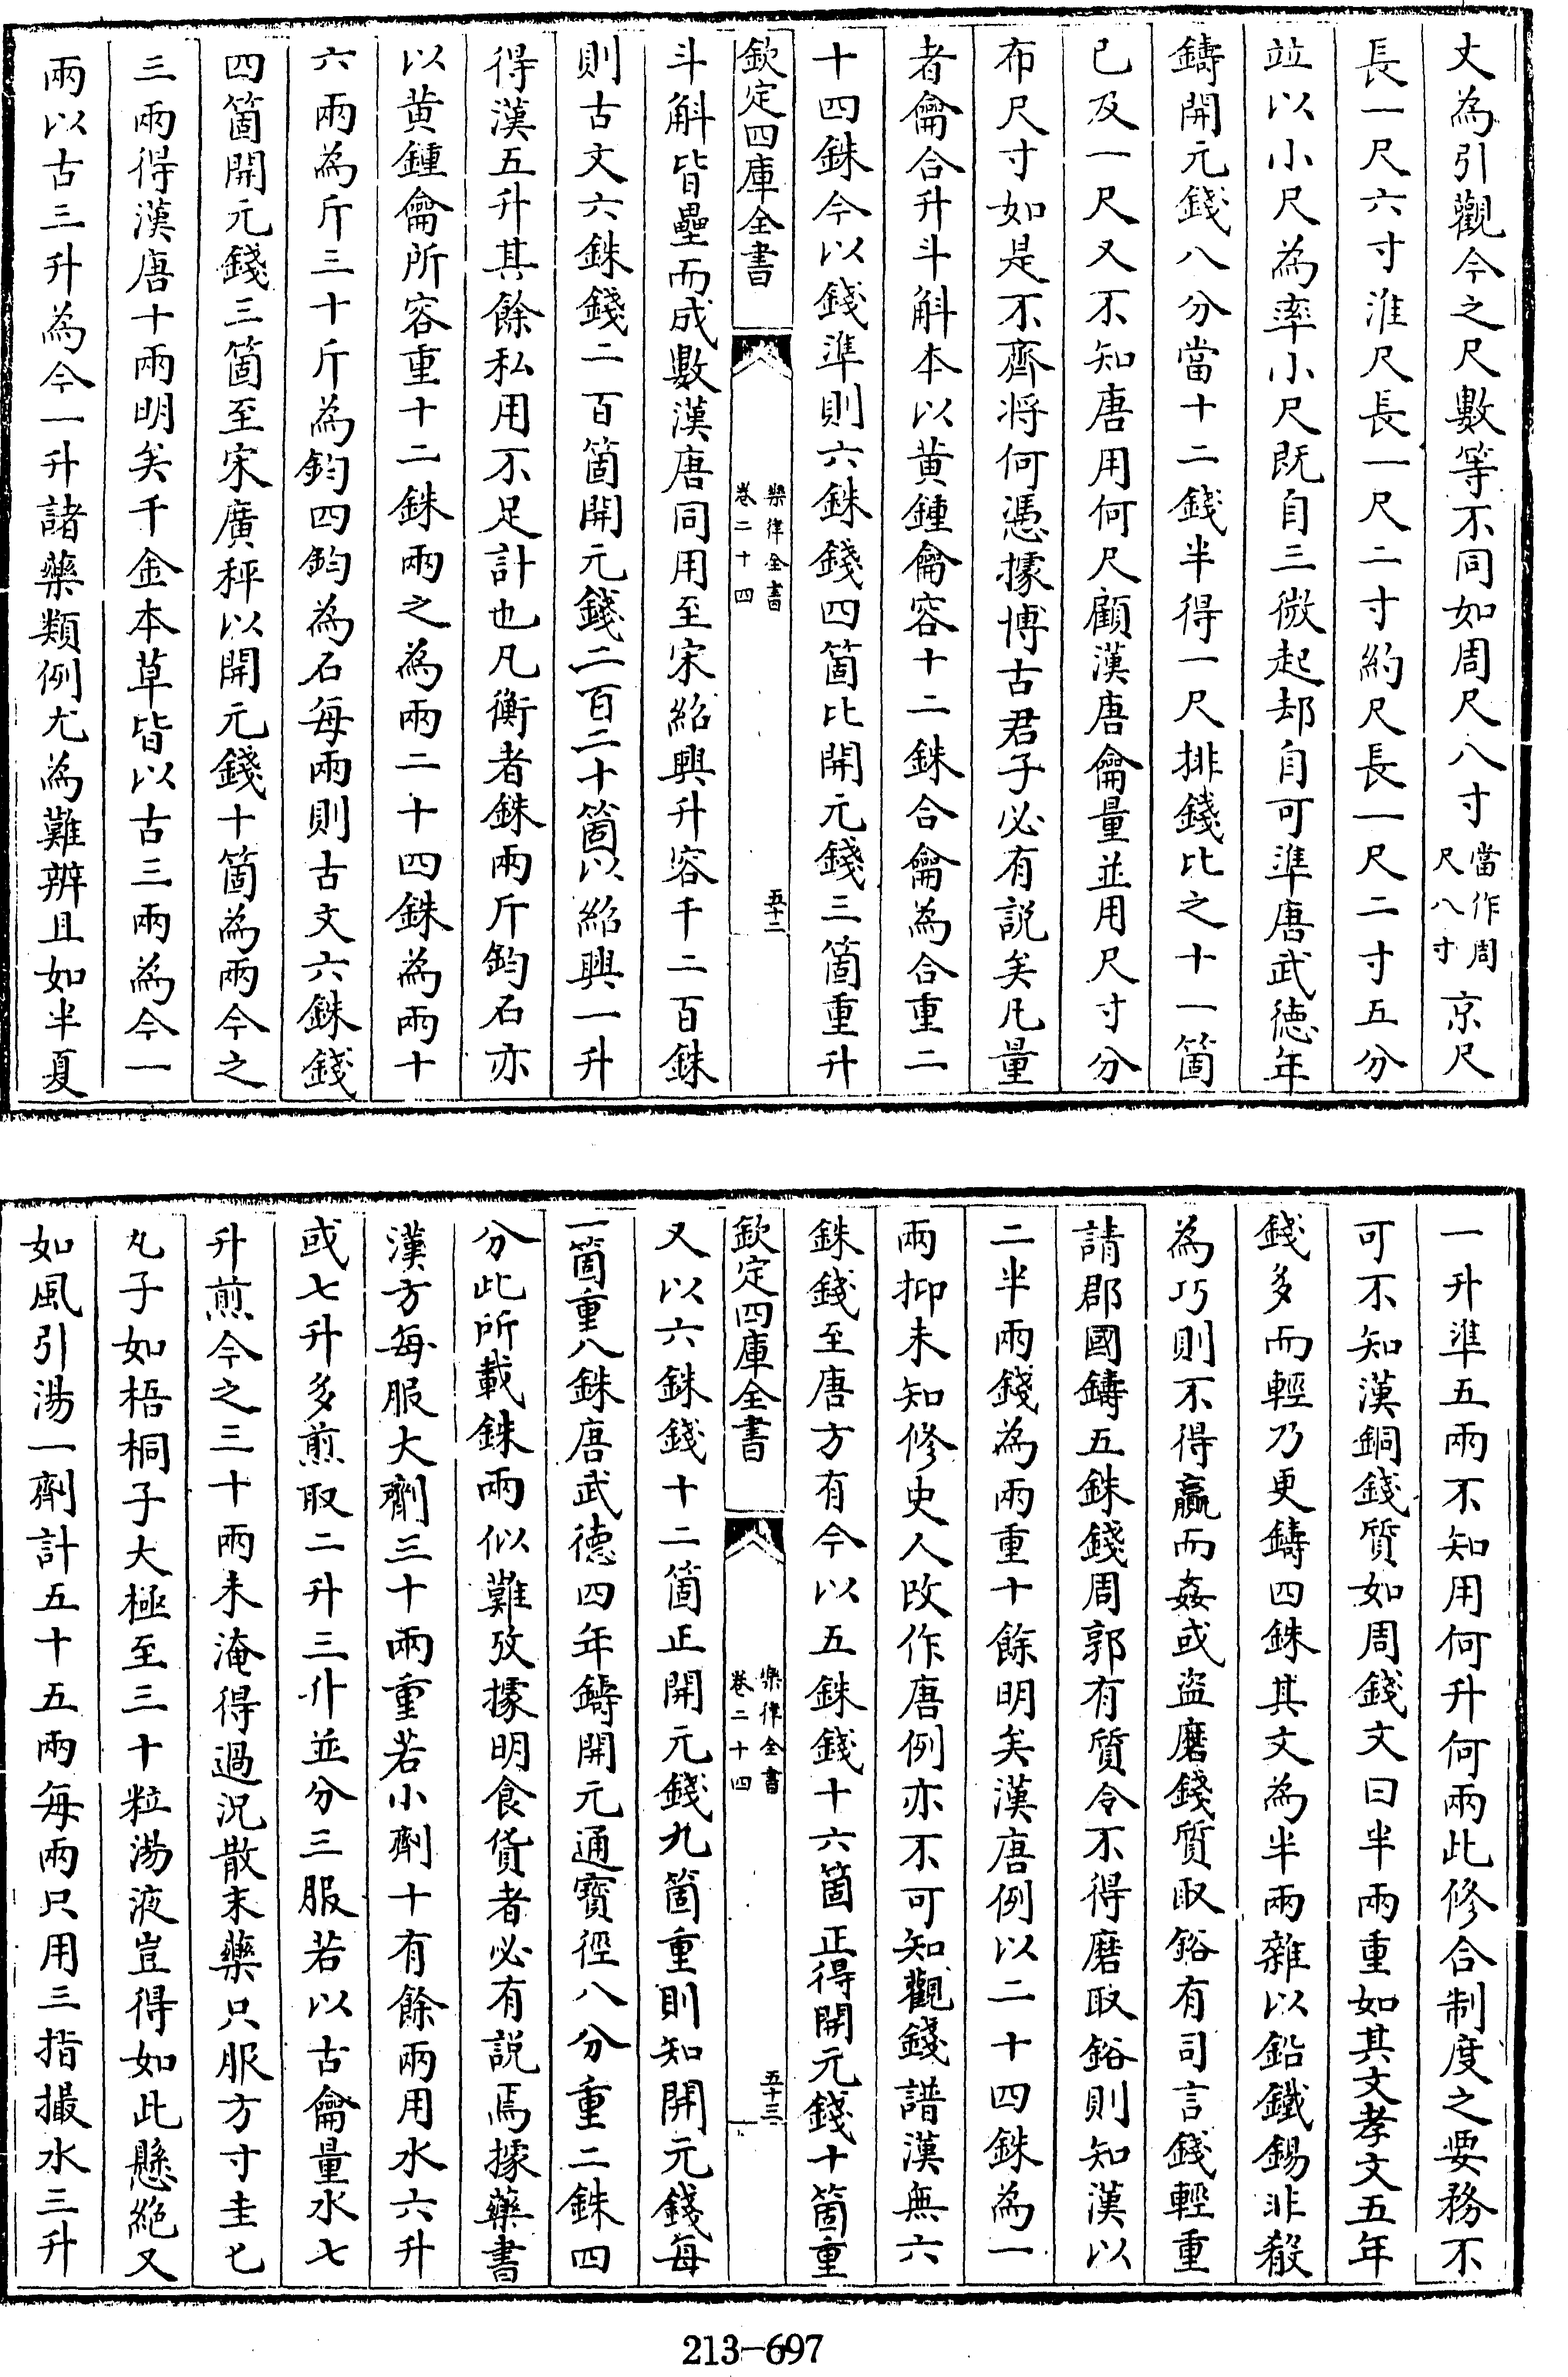 丈為引觀今之尺數等不同如周尺八寸當作周尺八寸京尺
長一尺六寸淮尺長一尺二寸約尺長一尺二寸五分
竝以小尺為率小尺既自三微起却自可準唐武徳年
鑄開元錢八分當十二錢半得一尺排錢比之十一箇
已及一尺又不知唐用何尺顧漢唐龠量並用尺寸分
布尺寸如是不齊将何憑據博古君子必有説矣凡量
者龠合升斗斛本以黄鍾龠容十二銖合龠為合重二
十四銖今以錢準則六銖錢四箇比開元錢三箇重升
欽定四庫全書
樂律全書
卷二十四
五十二
斗斛皆壘而成數漢唐同用至宋紹興升容千二百銖
則古文六銖錢二百箇開元錢二百二十箇以紹興一升
得漢五升其餘私用不足計也凡衡者銖兩斤鈞石亦
以黄鍾龠所容重十二銖兩之為兩二十四銖為兩十
六兩為斤三十斤為鈞四鈞為石每兩則古文六銖錢
四箇開元錢三箇至宋廣秤以開元錢十箇為兩今之
三兩得漢唐十兩明矣千金本草皆以古三兩為今一
兩以古三升為今一升諸藥類例尤為難辨且如半夏
一升準五兩不知用何升何兩此修合制度之要務不
可不知漢銅錢質如周錢文曰半兩重如其文孝文五年
錢多而輕乃更鑄四銖其文為半兩雜以鉛鐵錫非殽
為巧則不得贏而姦或盗磨錢質取鋊有司言錢輕重
請郡國鑄五銖錢周郭有質令不得磨取鋊則知漢以
二半兩錢為兩重十餘明矣漢唐例以二十四銖為一
兩抑未知修史人改作唐例亦不可知觀錢譜漢無六
銖錢至唐方有今以五銖錢十六箇正得開元錢十箇重
欽定四庫全書
樂律全書
卷二十四
五十三
又以六銖錢十二箇正開元錢九箇重則知開元錢每
一箇重八銖唐武徳四年鑄開元通寶徑八分重二銖四
分此所載銖兩似難攷據明食貨者必有説焉據藥書
漢方每服大劑三十兩重若小劑十有餘兩用水六升
或七升多煎取二升三升並分三服若以古龠量水七
升煎今之三十兩未淹得過況散末藥只服方寸圭匕
丸子如梧桐子大極至三十粒湯液豈得如此懸絶又
如風引湯一劑計五十五兩每兩只用三指撮水三升
213-697